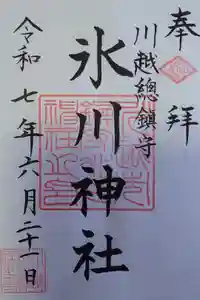 奉拝
川越總鎮守
氷川神社
令和七年六月二十一日